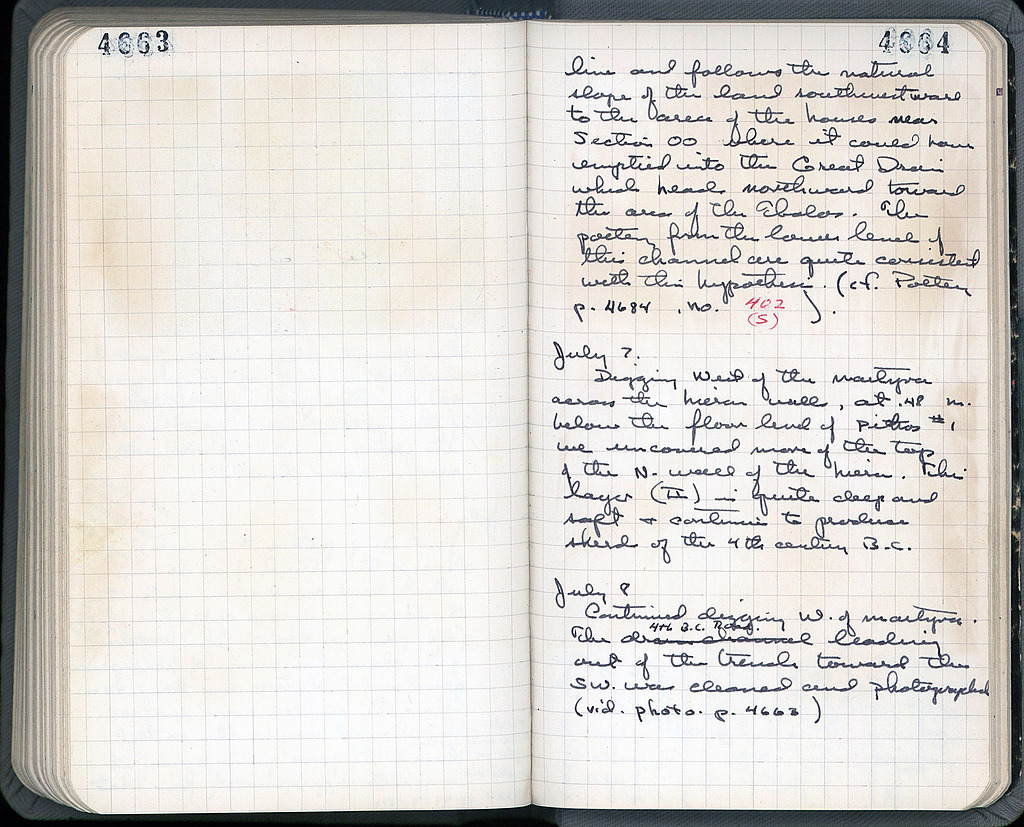 4663
4664
line and follows the natural
slope of the land southwestward
to the area of the houses near
Section OO where it could have
emptied into the Great Drain
which heads northward toward
the area of the Tholos. The
pottery from the lower level of
this channel are quite consistent
with this hypothesis. (cf. Pottery
p. 4684 , no. 402 ).
(S)
July 7.
Digging West of the martyra
across the hieron walls, at .48 m.
below the floor level of pithos #1
we uncovered more of the top
of the N. wall of the hieron. This
layer (II) is quite deep and
soft + continues to produce
sherds of the 4th century B.C.
July 8
Continued digging W. of martyra.
4th B.C. Road
The drain channel leading
out of the trench toward the
SW. was cleaned and photographed
(vid. photo. p. 4663 )